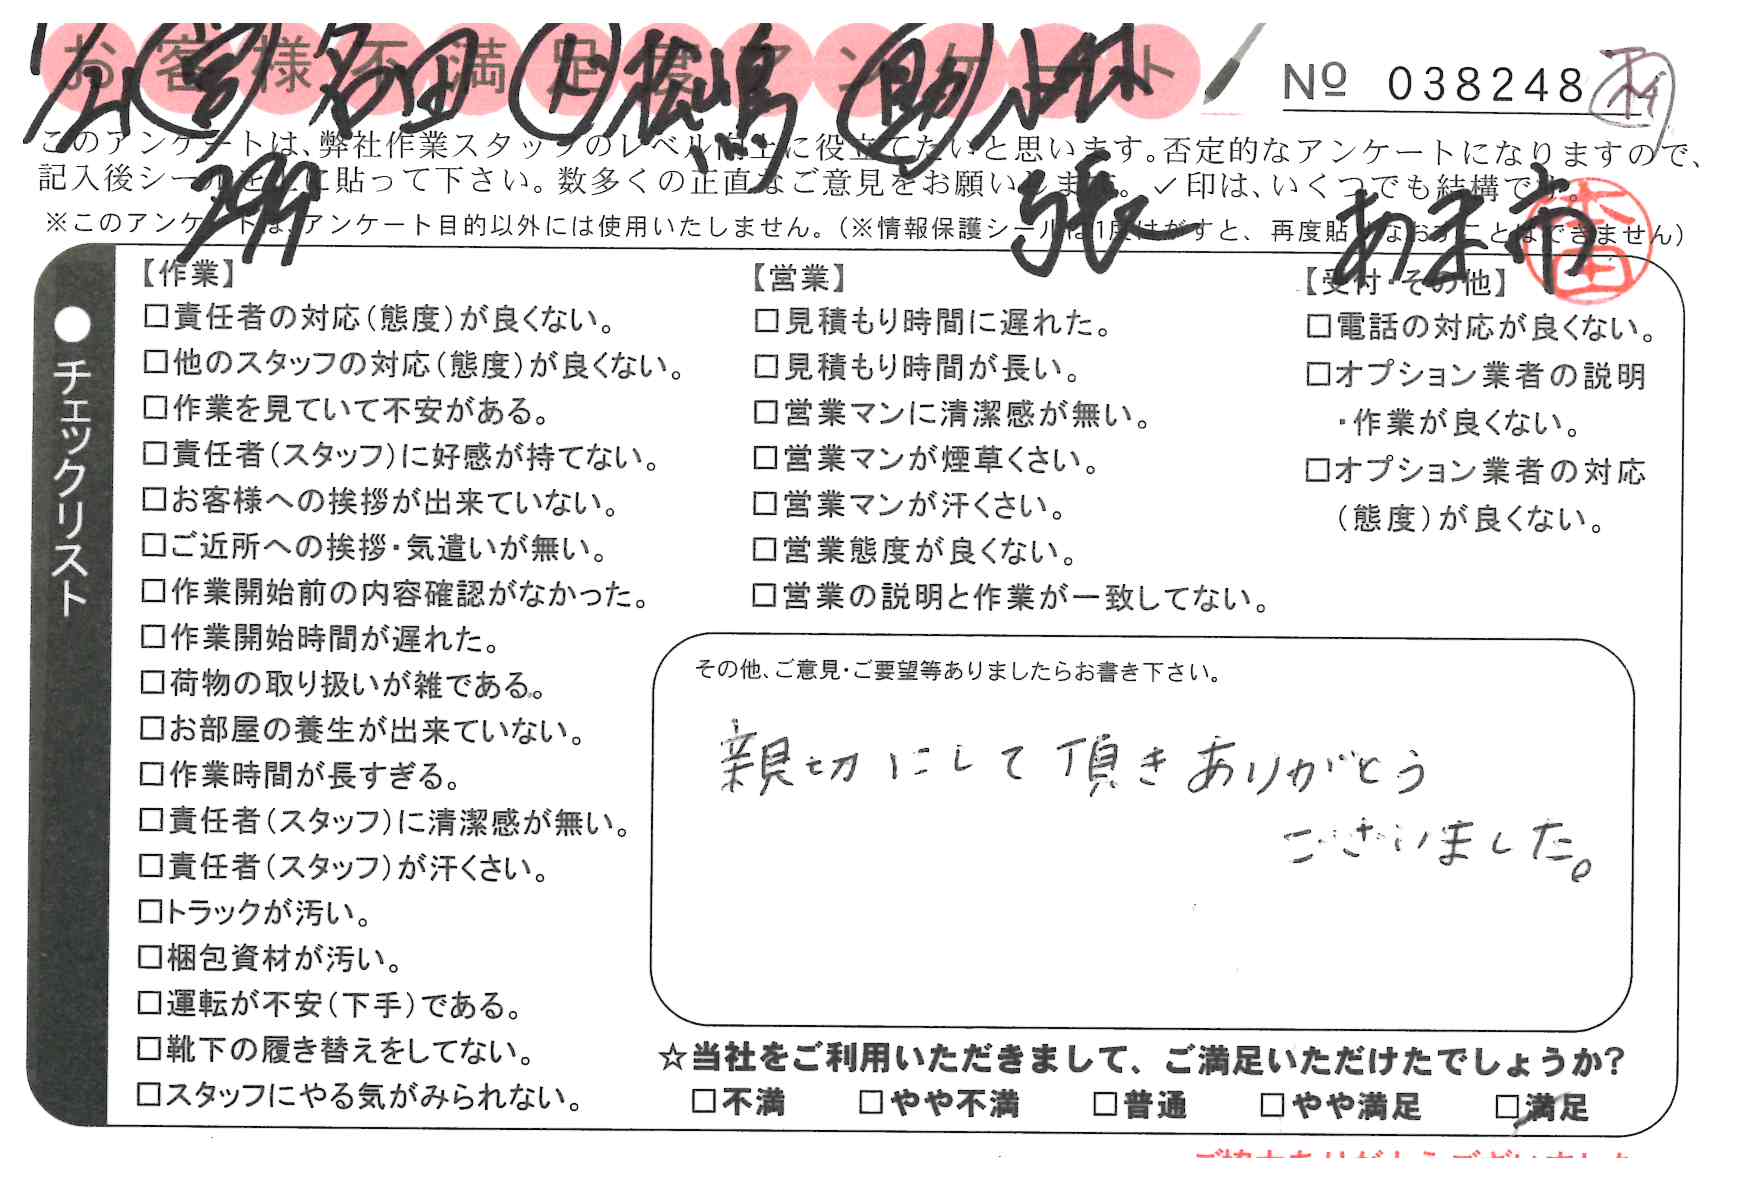 お客様不満足度アンケート
1/21 営 名田 ト 松嶋 助 小林
№ 038248
このアンケートは、弊社作業スタッフのレベル向上に役立てたいと思います。否定的なアンケートになりますので、
記入後シールを上に貼って下さい。数多くの正直なご意見をお願いします。✓印は、いくつでも結構です。
※このアンケートは、アンケート目的以外には使用いたしません。(※情報保護シールは1度はがすと、再度貼りなおすことはできません)
張 あま市
本田
●チェックリスト
【作業】
□責任者の対応(態度)が良くない。
□他のスタッフの対応(態度)が良くない。
□作業を見ていて不安がある。
□責任者(スタッフ)に好感が持てない。
□お客様への挨拶が出来ていない。
□ご近所への挨拶・気遣いが無い。
□作業開始前の内容確認がなかった。
□作業開始時間が遅れた。
□荷物の取り扱いが雑である。
□お部屋の養生が出来ていない。
□作業時間が長すぎる。
□責任者(スタッフ)に清潔感が無い。
□責任者(スタッフ)が汗くさい。
□トラックが汚い。
□梱包資材が汚い。
□運転が不安(下手)である。
□靴下の履き替えをしてない。
□スタッフにやる気がみられない。
【営業】
□見積もり時間に遅れた。
□見積もり時間が長い。
□営業マンに清潔感が無い。
□営業マンが煙草くさい。
□営業マンが汗くさい。
□営業態度が良くない。
□営業の説明と作業が一致してない。
【受付・その他】
□電話の対応が良くない。
□オプション業者の説明
・作業が良くない。
□オプション業者の対応
(態度)が良くない。
その他、ご意見・ご要望等ありましたらお書き下さい。
親切にして頂きありがとう
ございました。
☆当社をご利用いただきまして、ご満足いただけたでしょうか?
□不満 □やや不満 □普通 □やや満足 □満足